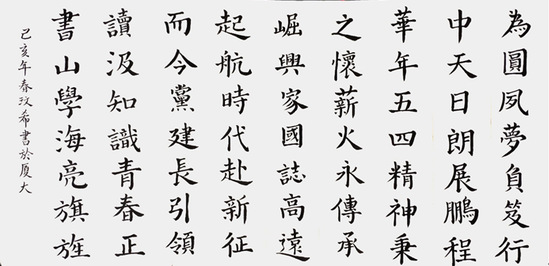 為圓夙夢負笈行
中天日朗展鵬程
華年五四精神秉
之懷薪火永傳承
崛興家國誌高遠
起航時代赴新征
而今黨建長引領
讀汲知識青春正
書山學海亮旗旌
己亥年春希書於厦大